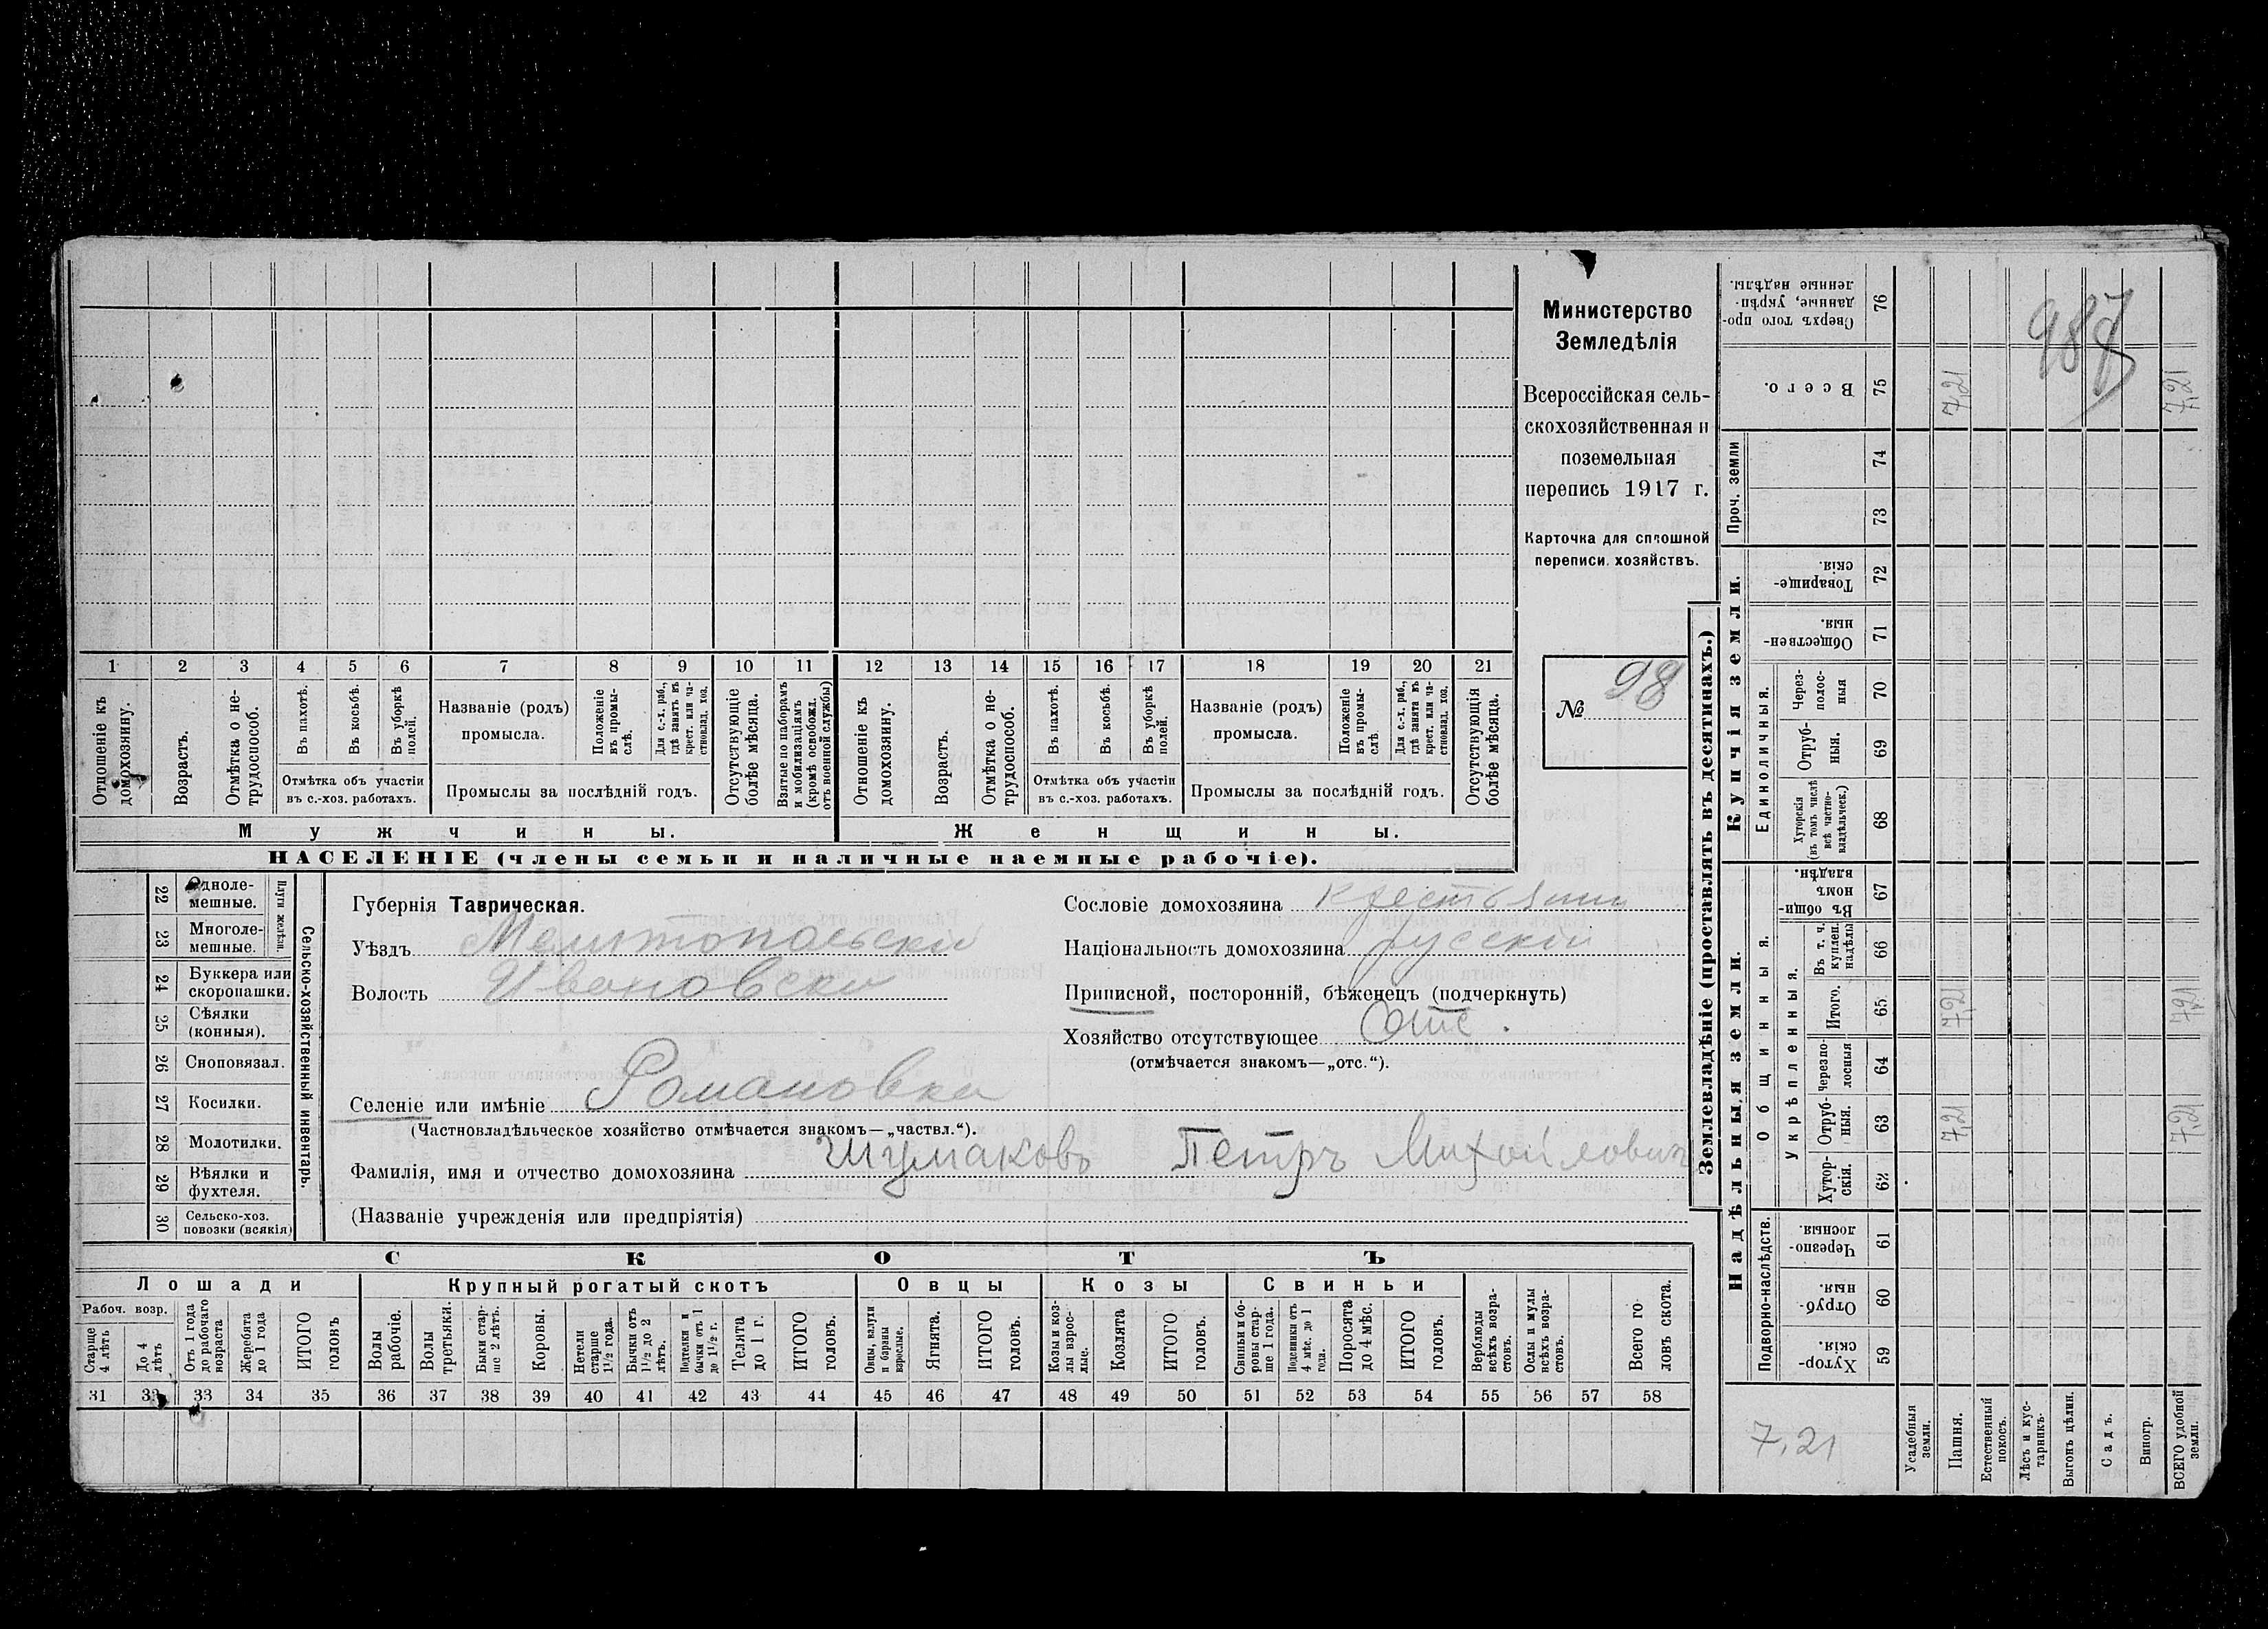 Министерство
Земледѣлія
Всероссійская сель-
скохозяйственная и
поземельная
перепись 1917 г.
Карточка для сплошной
переписи хозяйствъ.
№ 98
1 2 3 4 5 6 7 8 9 10 11 12 13 14 15 16 17 18 19 20 21
Отношеніе къ домохозяину.
Возрастъ.
Отмѣтка о не-трудоспособ.
Въ пахотѣ.
Въ косьбѣ.
Въ уборкѣ полей.
Отмѣтка объ участіи
въ с.-хоз. работахъ.
Названіе (родъ)
промысла.
Положеніе въ промы-слѣ.
Для с.-х. раб., гдѣ занятъ въ крест. или ча-стновлад. хоз.
Промыслы за послѣдній годъ.
Отсутствующіе болѣе мѣсяца.
Взятые по наборамъ и мобилизаціямъ (кромѣ освобожд. отъ военной службы)
Отношеніе къ домохозяину.
Возрастъ.
Отмѣтка о не-трудоспособ.
Въ пахотѣ.
Въ косьбѣ.
Въ уборкѣ полей.
Отмѣтка объ участіи
въ с.-хоз. работахъ.
Названіе (родъ)
промысла.
Положеніе въ промы-слѣ.
Для с.-х. раб., гдѣ занята въ крест. или ча-стновлад. хоз.
Промыслы за послѣдній годъ.
Отсутствующія болѣе мѣсяца.
Мужчины.
Женщины.
НАСЕЛЕНІЕ (члены семьи и наличные наемные рабочіе).
22 Одноле-мешные.
23 Многоле-мешные.
Плуги желѣзн.
24 Буккера или скоропашки.
25 Сѣялки (конныя).
26 Сноповязал.
27 Косилки.
28 Молотилки.
29 Вѣялки и фухтеля.
30 Сельско-хоз. повозки (всякія)
Сельско-хозяйственный инвентарь.
Губернія Таврическая.
Уѣздъ Мелитопольскій
Волость Ивановска
Селеніе или имѣніе Романовка
(Частновладѣльческое хозяйство отмѣчается знакомъ—„частвл.“).
Фамилія, имя и отчество домохозяина Шумаковъ Петръ Михойлович
(Названіе учрежденія или предпріятія)
Сословіе домохозяина крестьянин
Національность домохозяина русскій
Приписной, посторонній, бѣженецъ (подчеркнуть)
Хозяйство отсутствующее Отс.
(отмѣчается знакомъ—„отс.“).
СКОТЪ
Лошади
Крупный рогатый скотъ
Овцы
Козы
Свиньи
Рабоч. возр.
Старше 4 лѣтъ
До 4 лѣтъ
Отъ 1 года до рабочаго возраста
Жеребята до 1 года
ИТОГО головъ
Волы рабочіе.
Волы третьяки.
Быки стар-ше 2 лѣтъ.
Коровы.
Нетели старше 1½ года.
Бычки отъ 1½ до 2 лѣтъ.
Подтелки и бычки отъ 1 до 1½ г.
Телята до 1 г.
ИТОГО головъ.
Овцы, валухи и бараны взрослые.
Ягнята.
ИТОГО головъ.
Козы и коз-лы взрос-лые.
Козлята
ИТОГО головъ.
Свиньи и бо-ровы стар-ше 1 года.
Подсвинки отъ 4 мѣс. до 1 года.
Поросята до 4 мѣс.
ИТОГО головъ.
Верблюды всѣхъ возра-стовъ.
Ослы и мулы всѣхъ возра-стовъ.
Всего го ловъ скота.
31 32 33 34 35 36 37 38 39 40 41 42 43 44 45 46 47 48 49 50 51 52 53 54 55 56 57 58
Землевладѣніе (проставлять въ десятинахъ.)
Купчія земли.
Надѣльныя земли.
Сверхъ того про-данные, укрѣп-ленные надѣлы. 76
987
Всего. 75 7,21 7,21
Проч. земли 74
73
Товарище-скія. 72
Обществен-ныя. 71
Единоличныя.
Через-полос-ныя 70
Отруб-ныя. 69
Хуторскія (въ томъ числѣ всѣ частно-владѣльческ.) 68
Общинныя.
Въ общи-номъ владѣн. 67
Укрѣпленныя.
Въ т. ч. куплен. надѣлы 66
Итого. 65 7,21 7,21
Черезпо-лосныя 64
Отруб-ныя. 63 7,21 7,21
Хутор-скія. 62
Подворно-наслѣдств.
Черезпо-лосныя. 61
Отруб-ныя. 60
Хутор-скія. 59
7,21
Усадебныя земли.
Пашня.
Естественный покосъ.
Лѣсъ и кус-тарникъ.
Выгонъ цѣлин.
Садъ.
Виногр.
ВСЕГО удобной земли.